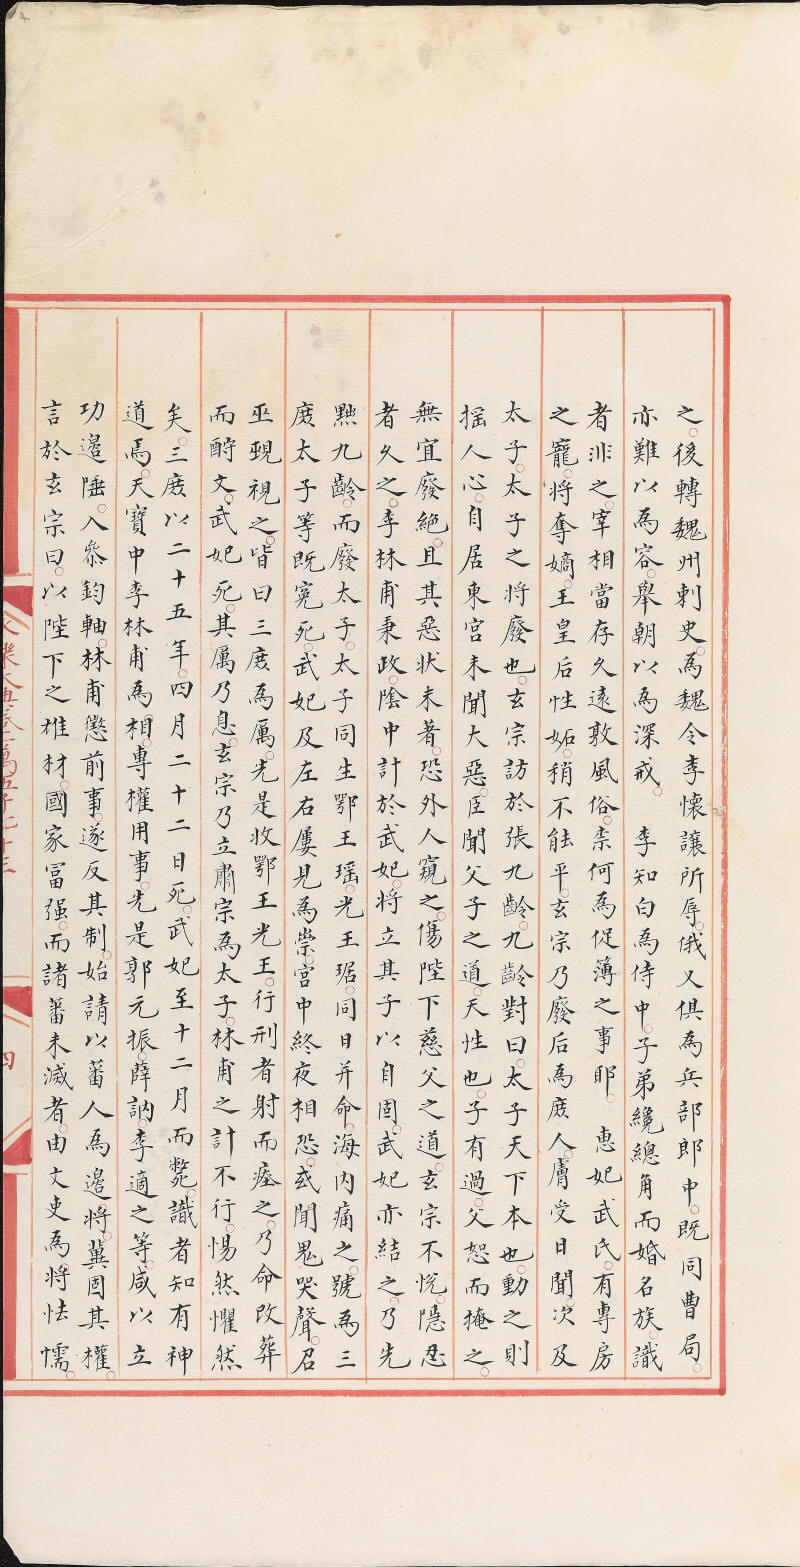 之。後轉魏州刺史。為魏令李懷讓所辱。俄又俱為兵部郎中。既同曹局。
亦難以為容。舉朝以為深戒。 李知白為侍中。子弟纔總角而婚名族。識
者非之。宰相當存久遠敦風俗。柰何為促薄之事耶。 惠妃武氏。有專房
之寵。將奪嫡。王皇后性妬。稍不能平。玄宗乃廢后為庶人。膚受日聞。次及
太子。太子之將廢也。玄宗訪於張九齡。九齡對曰。太子天下本也。動之則
揺人心。自居東宮未聞大惡。臣聞父子之道。天性也。子有過。父恕而掩之。
無宜廢絶。且其惡狀未著。恐外人窺之。傷陛下慈父之道。玄宗不恱。隠忍
者久之。李林甫秉政。陰中計於武妃。將立其子以自固。武妃亦結之。乃先
㸃九齡。而廢太子。太子同生鄂王瑶。光王琚。同日并命。海内痛之。號為三
庻太子等既寃死。武妃及左右屢見為祟。宮中終夜相恐。或聞鬼哭聲。召
巫覡視之。皆曰三庻為厲。先是收鄂王光王。行刑者射而瘞之。乃命改葬
而酹文。武妃死。其厲乃息。玄宗乃立肅宗為太子。林甫之計不行。惕然懼然
矣。三庻以二十五年。四月二十二日死。武妃至十二月而斃。識者知有神
道焉。天寶中李林甫為相。專權用事。先是郭元振。薛訥。李適之等。咸以立
功邉陲。入叅鈞軸。林甫懲前事。遂反其制。始請以蕃人為邉將。冀固其權。
言於玄宗曰。以陛下之雄材。國家冨强。而諸蕃未滅者。由文吏為將怯懦。
四